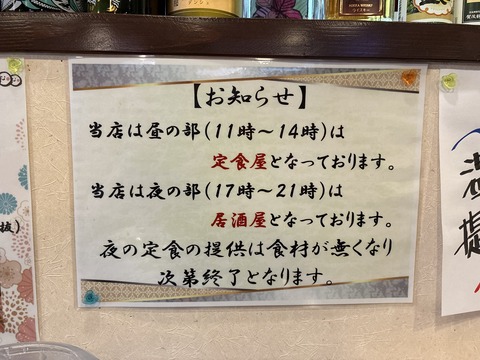 【お知らせ】
当店は昼の部(11時～14時)は
定食屋となっております。
当店は夜の部(17時～21時)は
居酒屋となっております。
夜の定食の提供は食材が無くなり
次第終了となります。
抜)
酒
提